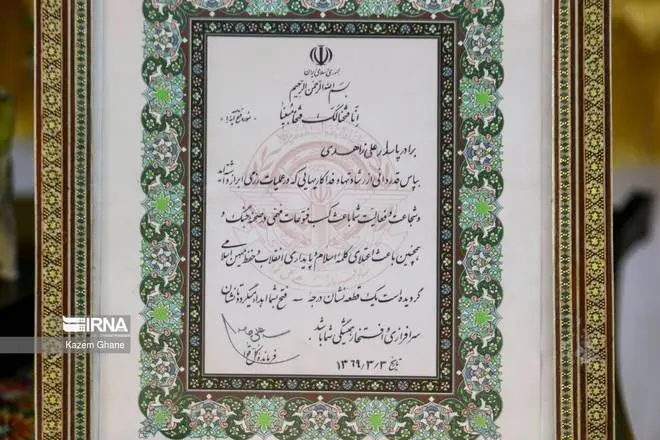 جمهوری اسلامی ایران
بسم الله الرحمن الرحیم
انا فتحنا لک فتحا مبینا
برادر پاسدار علی زاهدی
بپاس قدردانی از رشادتها و فداکاریهائی که در عملیات رزمی ابراز داشته‌اید
و شجاعت و فعالیت شما باعث کسب فتوحات مهمی در صحنه جنگ و
همچنین باعث اعتلای کلمه اسلام و پایداری انقلاب و حفظ میهن اسلامی
گردیده است یک قطعه نشان درجه - فتح بشما اهدا میگردد تا نشان
سرافرازی و افتخار همیشگی شما باشد
فرمانده کل قوا
تاریخ ۱۳۶۹/۳/۳
IRNA
Kazem Ghane